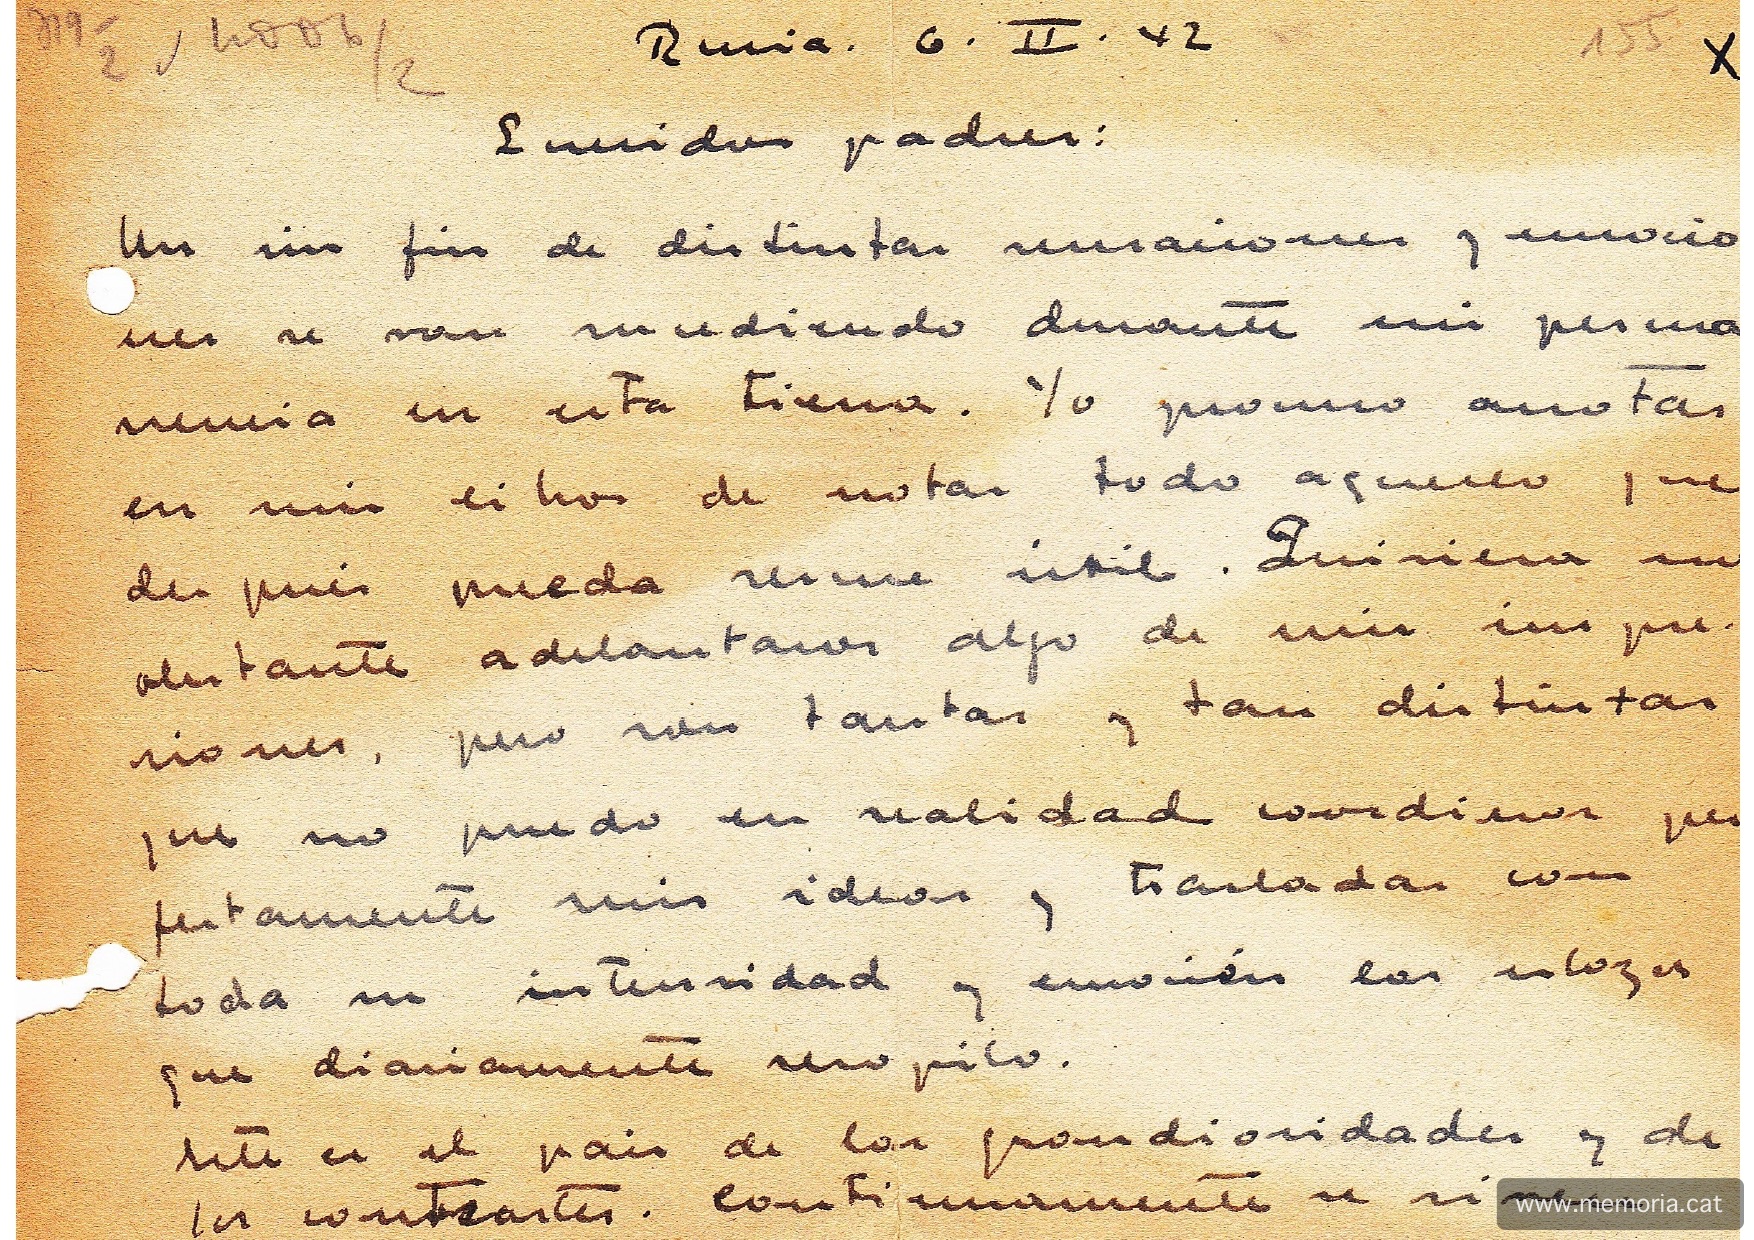 155 X
Rusia. 6. II. 42
Queridos padres:
Un sin fin de distintas sensaciones y emocio
nes se van sucediendo durante mi perma
nencia en esta tierra. Yo procuro anotar
en mis libros de notas todo aquello que
después pueda serme útil. Quisiera no
obstante adelantaros algo de mis impre-
siones, pero son tantas y tan distintas
que no puedo en realidad coordinar per
fectamente mis ideas y trasladar con
toda su intensidad y emoción los
que diariamente recopilo.
Este es el pais de las grandiosidades y de
los contrastes. Continuamente se
www.memoria.cat